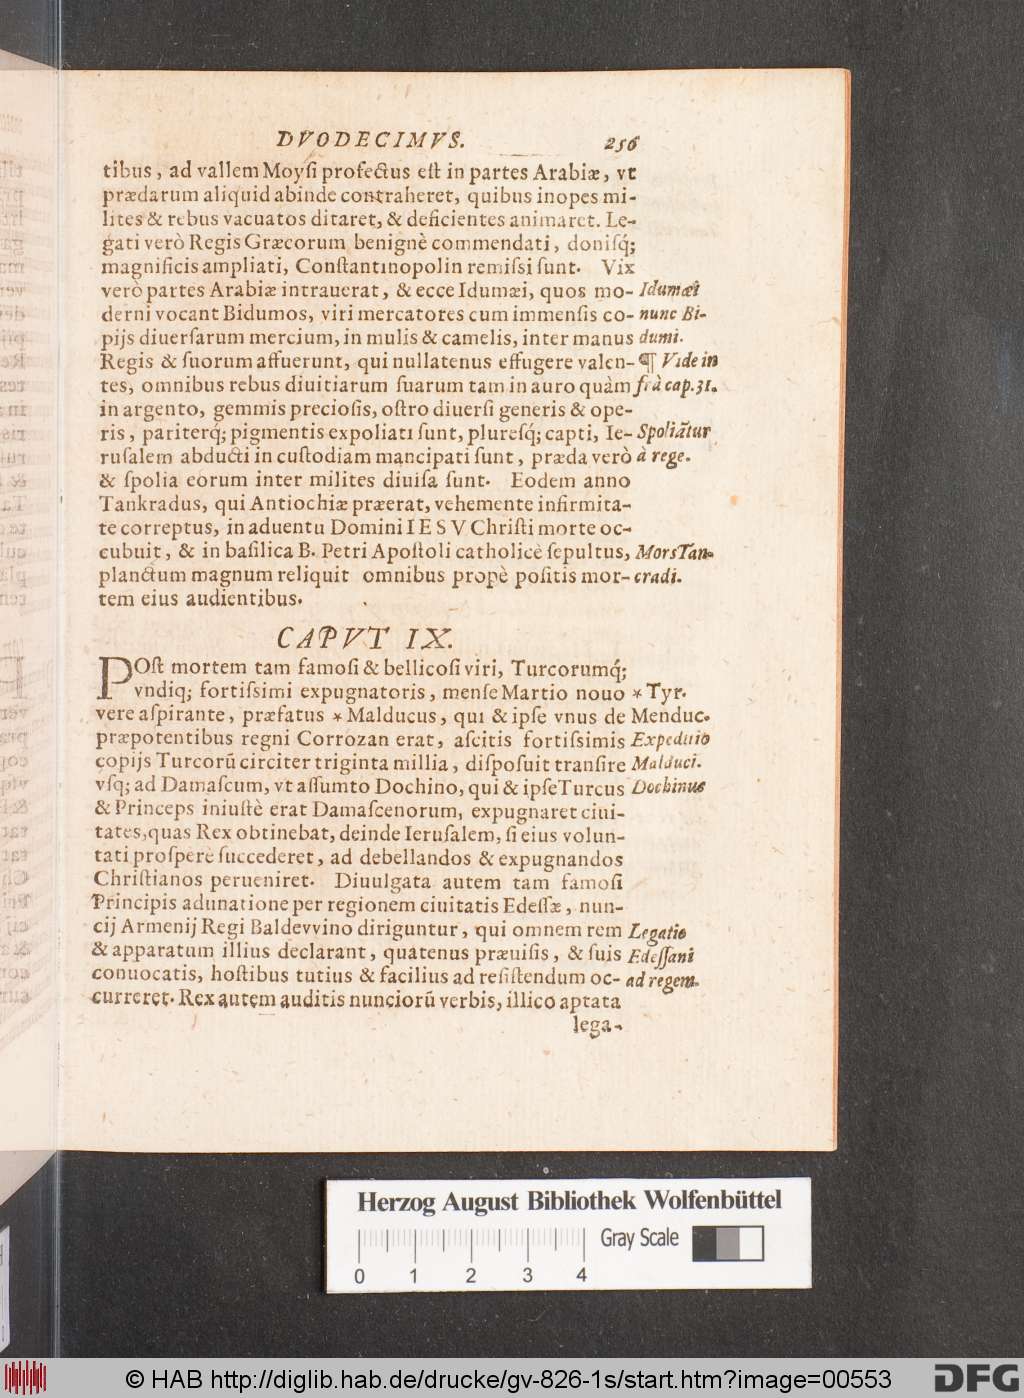 DVODECIMVS. 256
tibus, ad vallem Moyſi profectus eſt in partes Arabiæ, vt
prædarum aliquid abinde contraheret, quibus inopes mi-
lites & rebus vacuatos ditaret, & deficientes animaret. Le-
gati verò Regis Græcorum benignè commendati, doniſq́;
magnificis ampliati, Conſtantinopolin remiſsi ſunt. Vix
verò partes Arabiæ intrauerat, & ecce Idumæi, quos mo- Idumæi
derni vocant Bidumos, viri mercatores cum immenſis co- nunc Bi-
pijs diuerſarum mercium, in mulis & camelis, inter manus dumi.
Regis & ſuorum affuerunt, qui nullatenus effugere valen- ¶ Vide in
tes, omnibus rebus diuitiarum ſuarum tam in auro quàm frà cap. 31.
in argento, gemmis precioſis, oſtro diuerſi generis & ope-
ris, pariterq́; pigmentis expoliati ſunt, plureſq́; capti, Ie- Spoliãtur
ruſalem abducti in cuſtodiam mancipati ſunt, præda verò à rege.
& ſpolia eorum inter milites diuiſa ſunt. Eodem anno
Tankradus, qui Antiochiæ præerat, vehemente infirmita-
te correptus, in aduentu Domini IESV Chriſti morte oc-
cubuit, & in baſilica B. Petri Apoſtoli catholicè ſepultus, Mors Tan-
planctum magnum reliquit omnibus propè poſitis mor- cradi.
tem eius audientibus.
CAPVT IX.
POſt mortem tam famoſi & bellicoſi viri, Turcorumq́;
vndiq; fortiſsimi expugnatoris, menſe Martio nouo * Tyr.
vere aſpirante, præfatus * Malducus, qui & ipſe vnus de Menduc.
præpotentibus regni Corrozan erat, aſcitis fortiſsimis Expeditio
copijs Turcorũ circiter triginta millia, diſpoſuit tranſire Malduci.
vſq; ad Damaſcum, vt aſſumto Dochino, qui & ipſe Turcus Dochinus
& Princeps iniuſtè erat Damaſcenorum, expugnaret ciui-
tates, quas Rex obtinebat, deinde Ieruſalem, ſi eius volun-
tati proſperè ſuccederet, ad debellandos & expugnandos
Chriſtianos perueniret. Diuulgata autem tam famoſi
Principis adunatione per regionem ciuitatis Edeſſæ, nun-
cij Armenij Regi Baldevvino diriguntur, qui omnem rem Legatio
& apparatum illius declarant, quatenus præuiſis, & ſuis Edeſſani
conuocatis, hoſtibus tutius & facilius ad reſiſtendum oc- ad regem.
curreret. Rex autem auditis nunciorũ verbis, illico aptata
lega-
Herzog August Bibliothek Wolfenbüttel
Gray Scale
0 1 2 3 4
© HAB http://diglib.hab.de/drucke/gv-826-1s/start.htm?image=00553
DFG